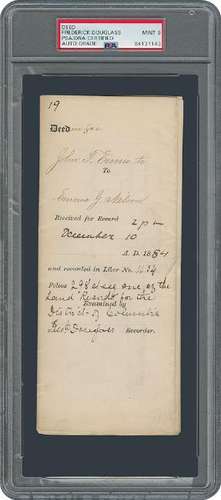 DEED
FREDERICK DOUGLASS
PSA/DNA CERTIFIED
AUTO. GRADE
MINT 9
PSA
84131142
19
Deed
John F.
To
Emma J. Nelson
Received for Record 2 p m
December 10
A. D. 1884
and recorded in Liber No.
Folios 298 et seq one of the
Land Records for the
Examined by
District of Columbia
Fredk Douglass Recorder.